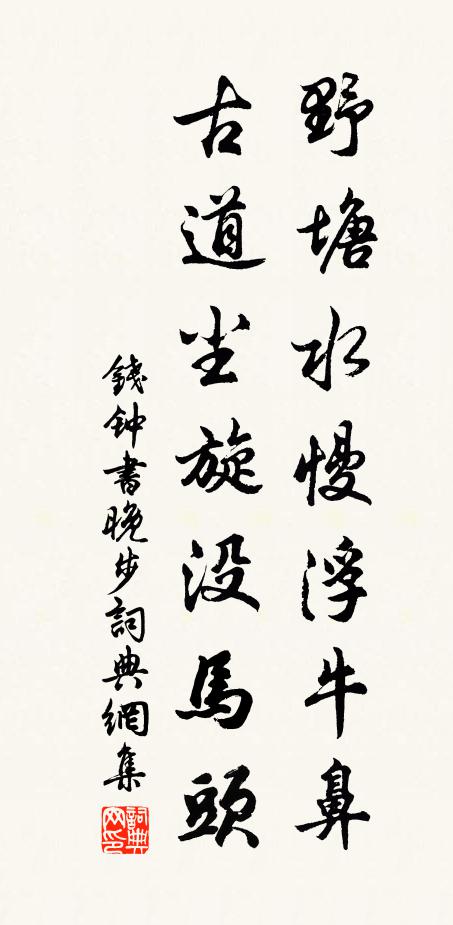 野塘水慢浮牛鼻
古道尘旋没馬頭
錢钟書晚步詞典網集
詞典网印